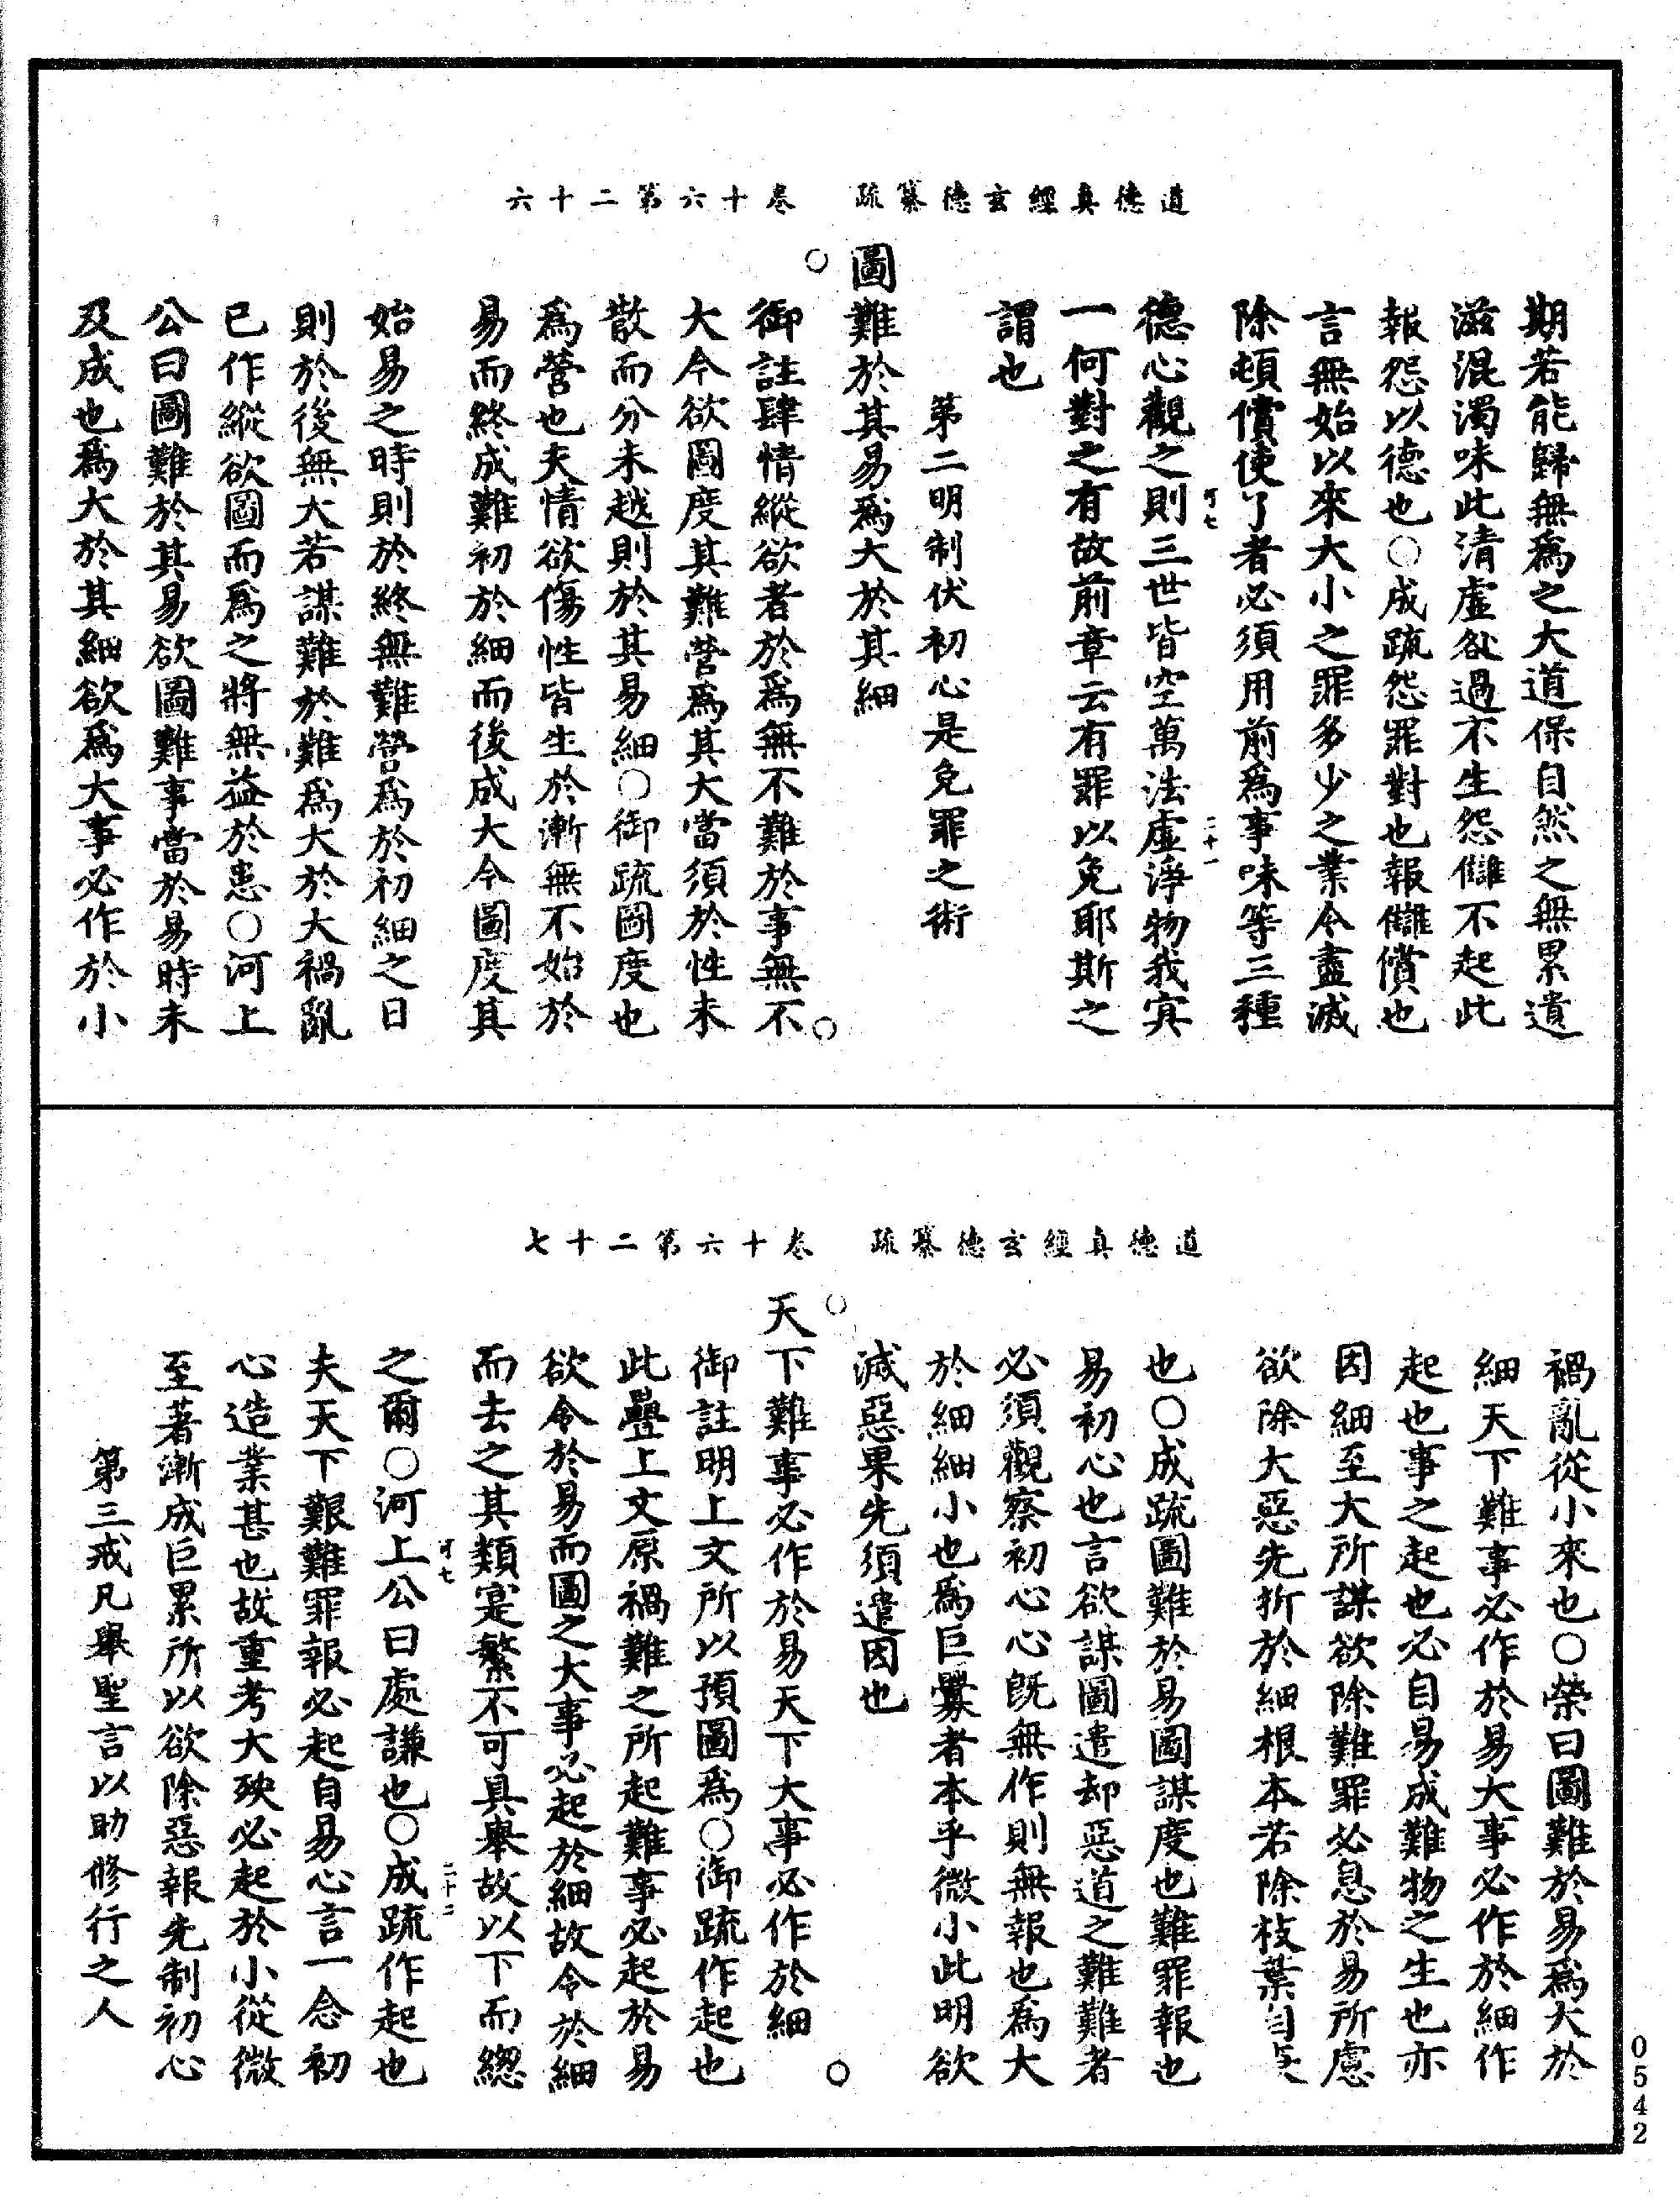 道德真經玄德纂疏　卷十六第二十六
期若能歸無爲之大道保自然之無累遣
滋混濁味此清虛愆過不生怨讎不起此
報怨以德也○成疏怨罪對也報讎償也
言無始以來大小之罪多少之業令盡滅
除頓償使了者必須用前爲事味等三種
德心觀之則三世皆空萬法虛淨物我宾
可七
二十一
一何對之有故前章云有罪以免耶斯之
謂也
第二明制伏初心是免罪之術
圖難於其易爲大於其細
御註肆情縱欲者於爲無不難於事無不
大今欲圖度其難營爲其大當須於性未
散而分未越則於其易細○御疏圖度也
爲營也夫情欲傷性皆生於漸無不始於
易而終成難初於細而後成大今圖度其
始易之時則於終無難營爲於初細之日
則於後無大若謀難於難爲大於大禍亂
已作縱欲圖而爲之將無益於患○河上
公曰圖難於其易欲圖難事當於易時未
及成也爲大於其細欲爲大事必作於小
道德真經玄德纂疏　卷十六第二十七
禍亂從小來也○榮曰圖難於易爲大於
細天下難事必作於易大事必作於細作
起也事之起也必自易成難物之生也亦
因細至大所謀欲除難罪必息於易所慮
欲除大惡先折於細根本若除枝葉自
也○成疏圖難於易圖謀度也難罪報也
易初心也言欲謀圖遣却惡道之難難者
必須觀察初心心既無作則無報也爲大
於細細小也爲巨釁者本乎微小此明欲
滅惡果先須遣因也
天下難事必作於易天下大事必作於細
御註明上文所以預圖爲○御疏作起也
此疊上文原禍難之所起難事必起於易
欲令於易而圖之大事必起於細故令於細
而去之其類寔繁不可具舉故以下而總
之爾○河上公曰處謙也○成疏作起也
可七
二十二
夫天下艱難罪報必起自易心言一念初
心造業甚也故重考大殃必起於小從微
至著漸成巨累所以欲除惡報先制初心
第三戒凡舉聖言以助修行之人
0542